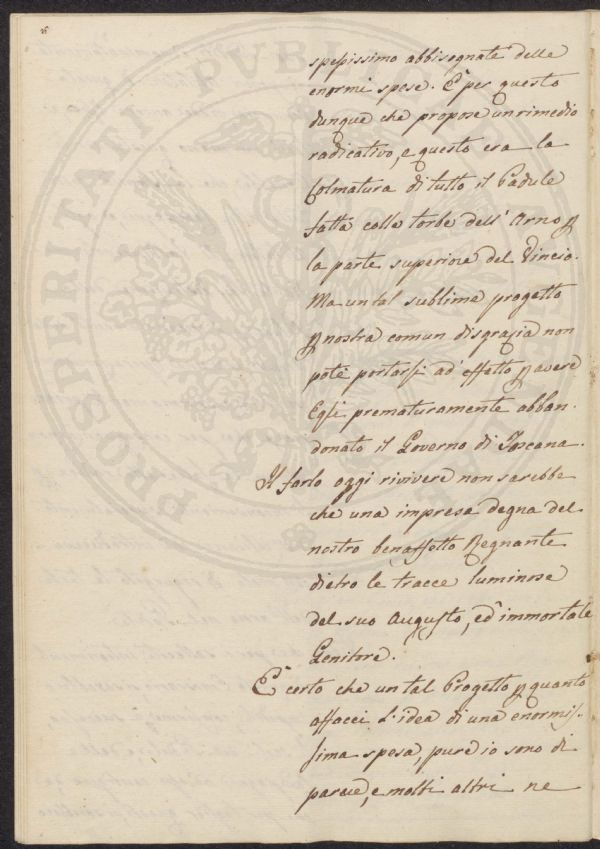 spessissimo abbisognate delle
enormi spese. È per questo
dunque che propose un rimedio
radicativo, e questo era la
Colmatura di tutto il Padule
fatta colle torbe dell' Arno p
la parte superiore del Vincio.
Ma un tal sublime progetto
p nostra comun disgrazia non
potè portarsi ad' effetto p avere
Egli prematuramente abban-
donato il Governo di Toscana.
Il farlo oggi rivivere non sarebbe
che una impresa degna del
nostro benaffetto Regnante
dietro le tracce luminose
del suo Augusto, ed' immortale
Genitore.
È certo che un tal Progetto p quanto
affacci l'idea di una enormis-
sima spesa, pure io sono di
parere, e molti altri ne
PROSPERITATI PUBL